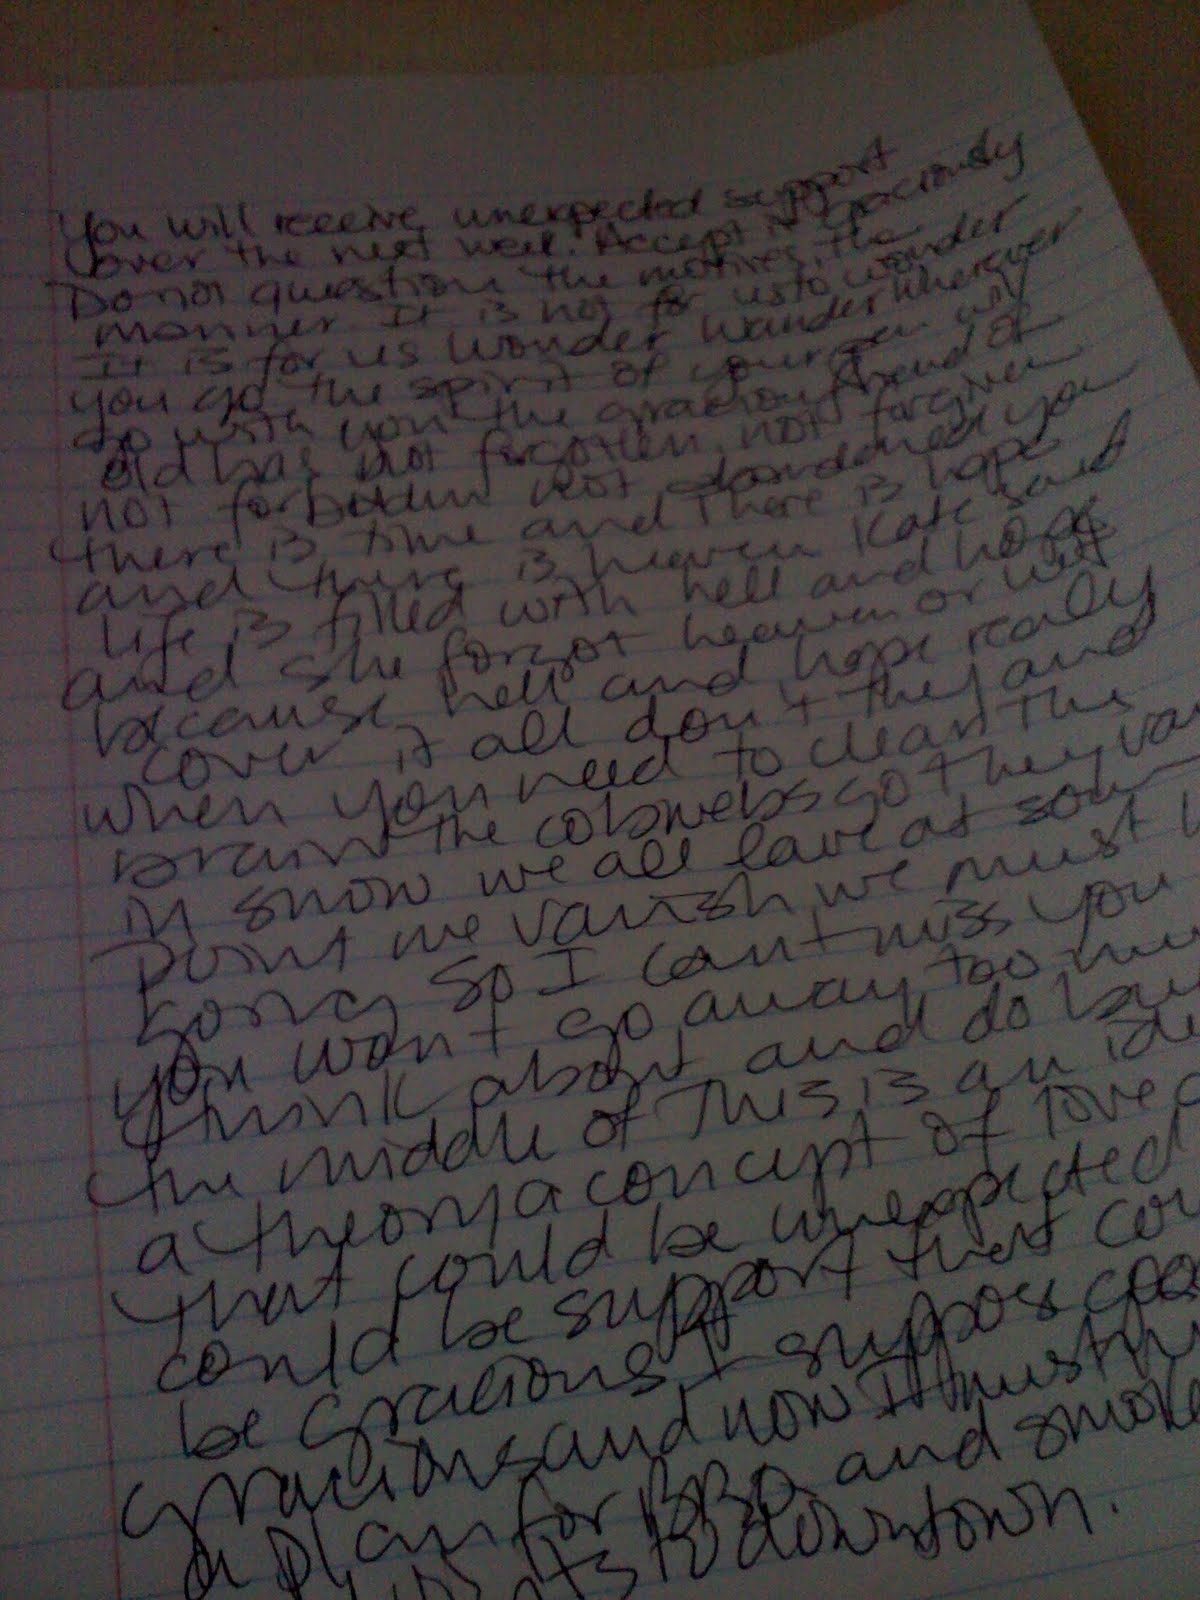 You will receive unexpected support
over the next week. Accept it graciously
Do not question the motives, the
manner. It is not for us to wonder
It is for us wonder wander wherever
you go the spirit of your own will
go with you the gracious friend of
old has not forgotten, not forgiven
not forbidden not abandoned you
there is time and there is hope
and there is heaven Kate said
life is filled with hell and hope
and she forgot heaven or left
because hell and hope really
cover it all don't they and
when you need to clean the
brain the cobwebs so they
in snow we all leave at some
point we vanish we must
so I can't miss you
you won't go away too
think about and do
the middle of this is an
a theory a concept of love
that could be unexpected
could be support that
be gracious I suppose
gracious and now I must
a plan for BBQ and
to downtown.